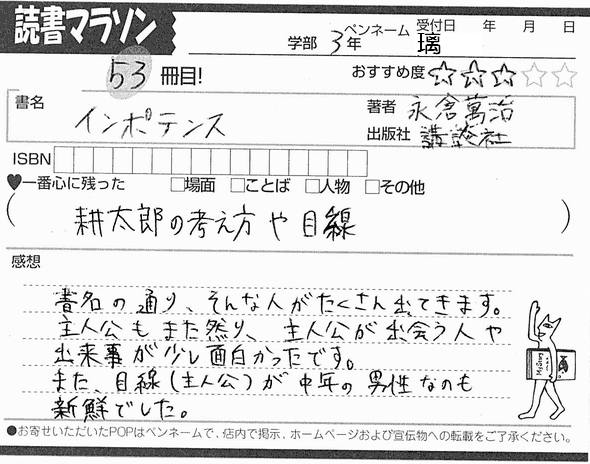 読書マラソン
学部 3年 ペンネーム 璃 受付日 年 月 日
53冊目! おすすめ度☆☆☆☆☆
書名 インポテンス 著者 永倉萬治
出版社 講談社
ISBN
♥一番心に残った □場面 □ことば □人物 □その他
(耕太郎の考え方や目線)
感想
書名の通り、そんな人がたくさん出てきます。
主人公もまた然り、主人公が出会う人や
出来事が少し面白かったです。
また、目線(主人公)が中年の男性なのも
新鮮でした。
●お寄せいただいたPOPはペンネームで、店内で掲示、ホームページおよび宣伝物への転載をご了承ください。